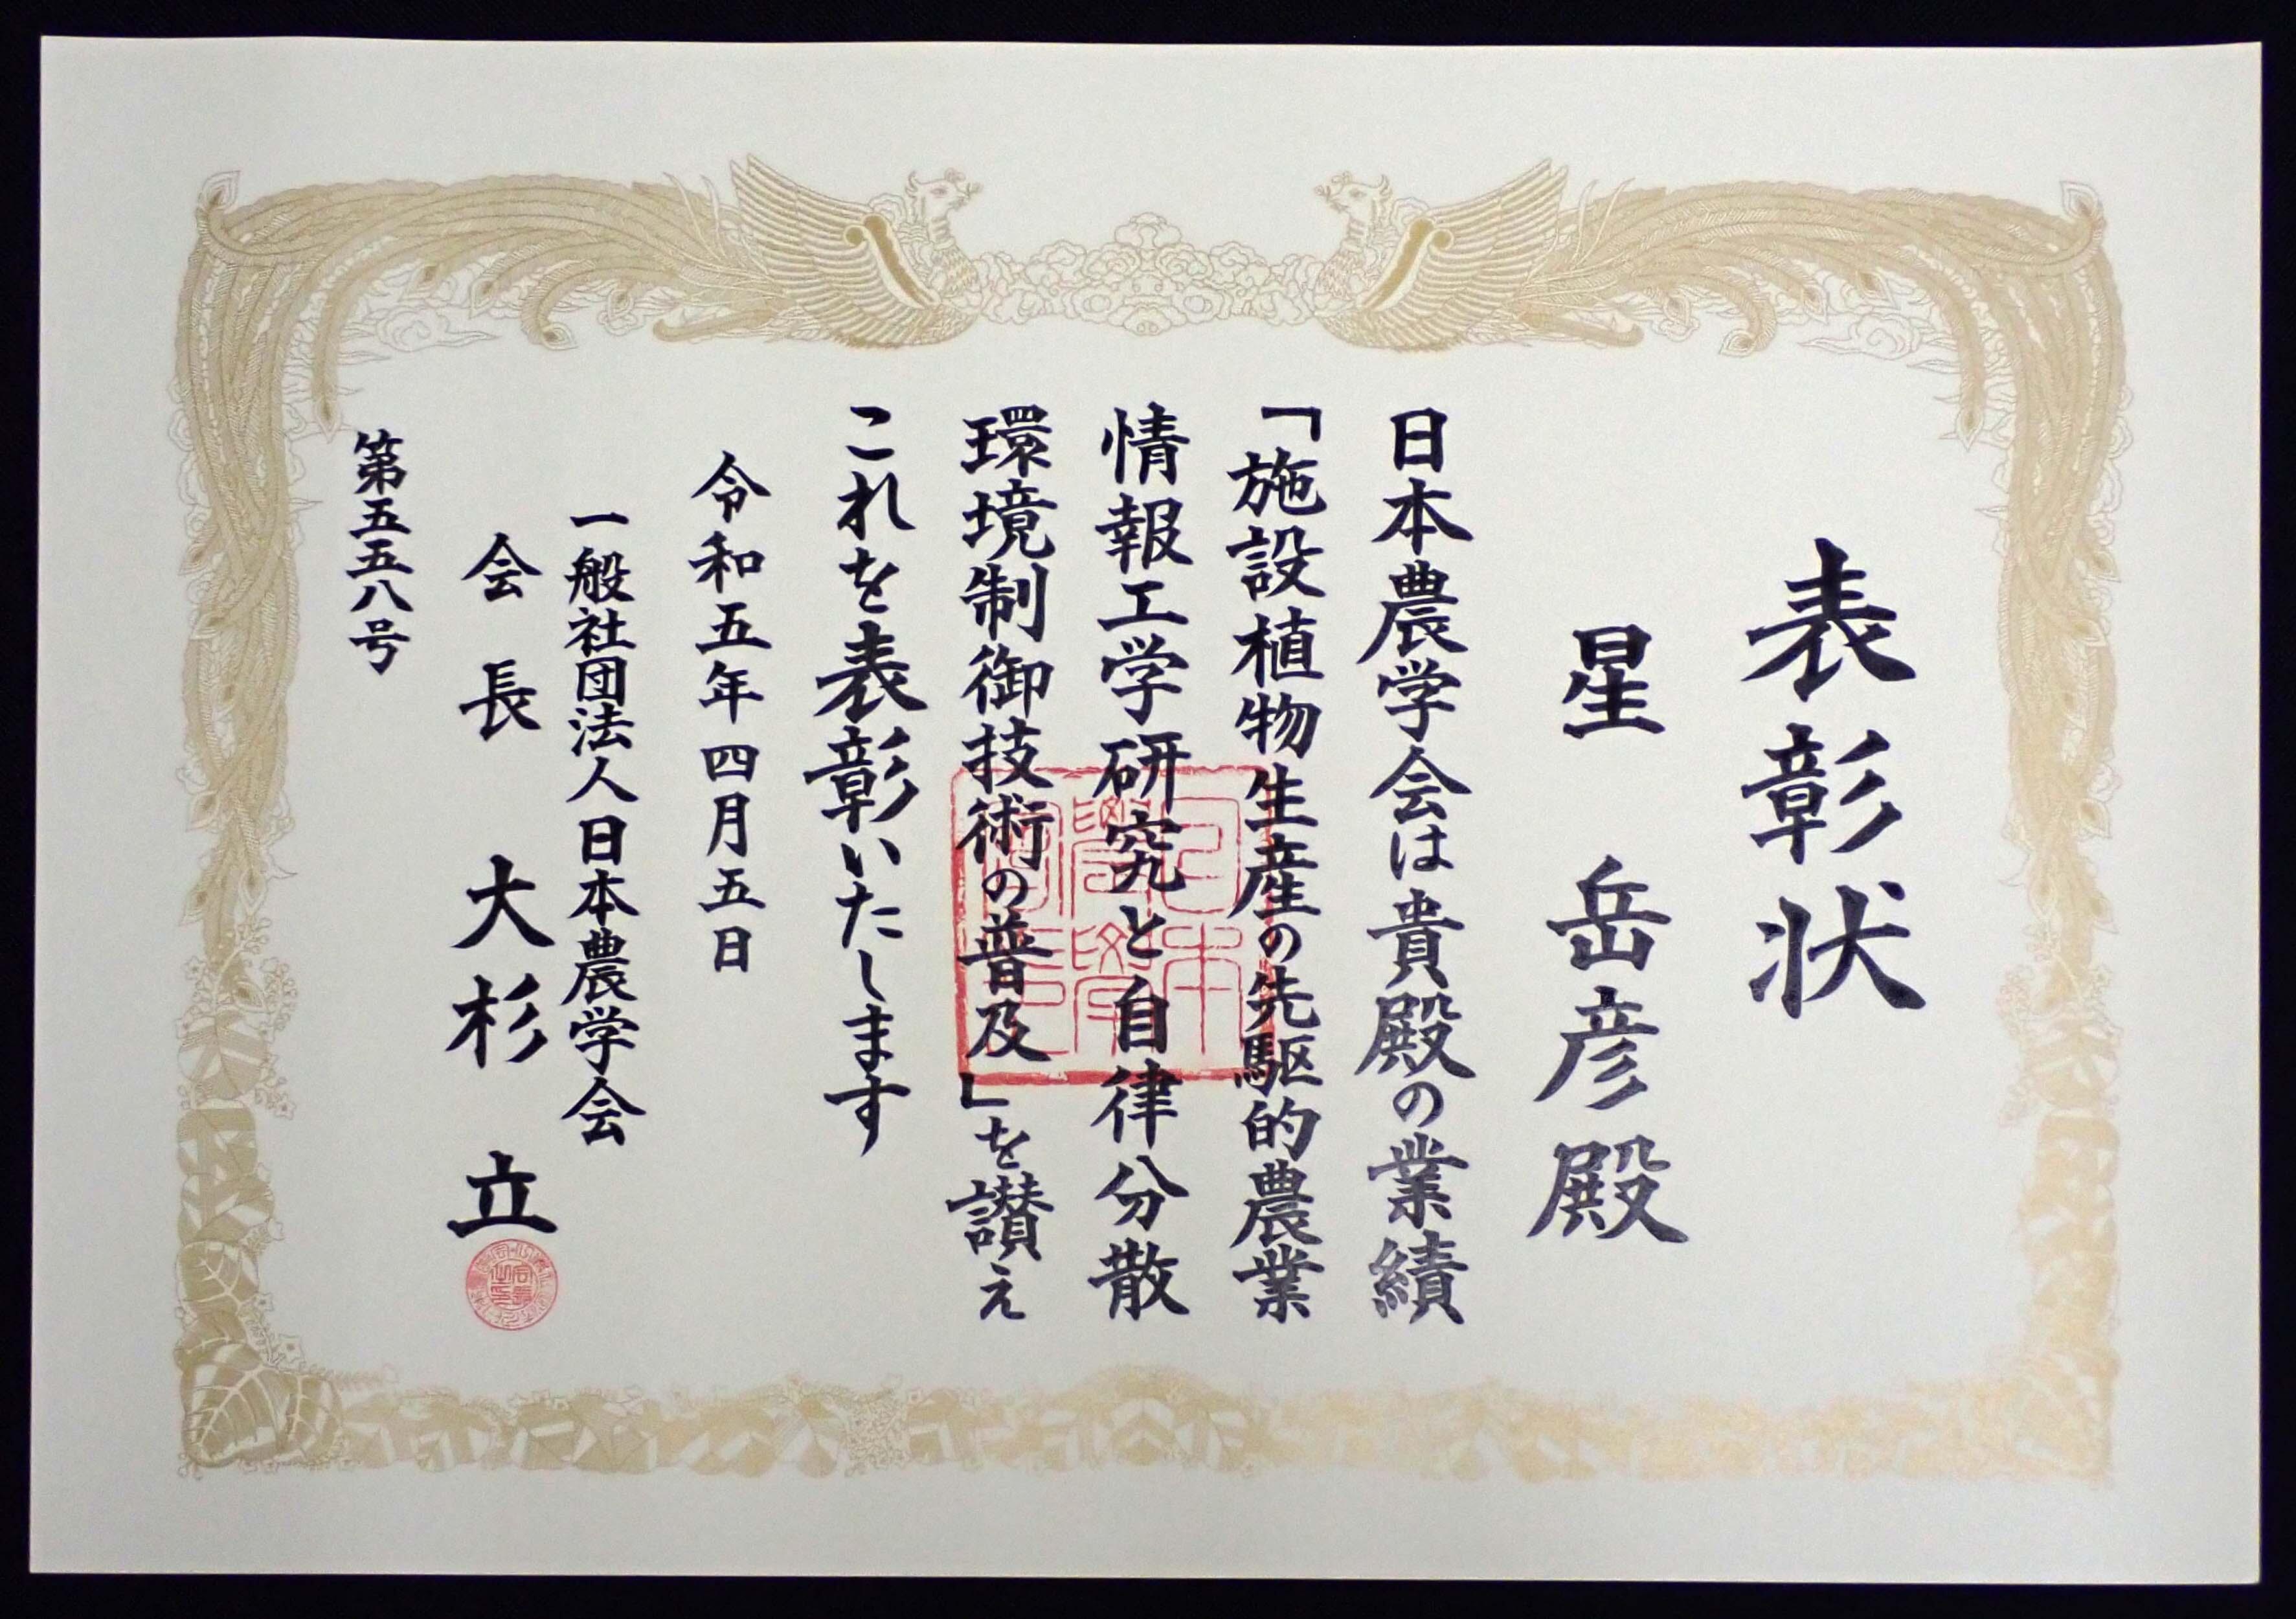 表彰状
星 岳彦殿
日本農学会は貴殿の業績
「施設植物生産の先駆的農業
情報工学研究と自律分散
環境制御技術の普及」を讃え
これを表彰いたします
令和五年四月五日
一般社団法人日本農学会
会長 大杉 立
第五五八号